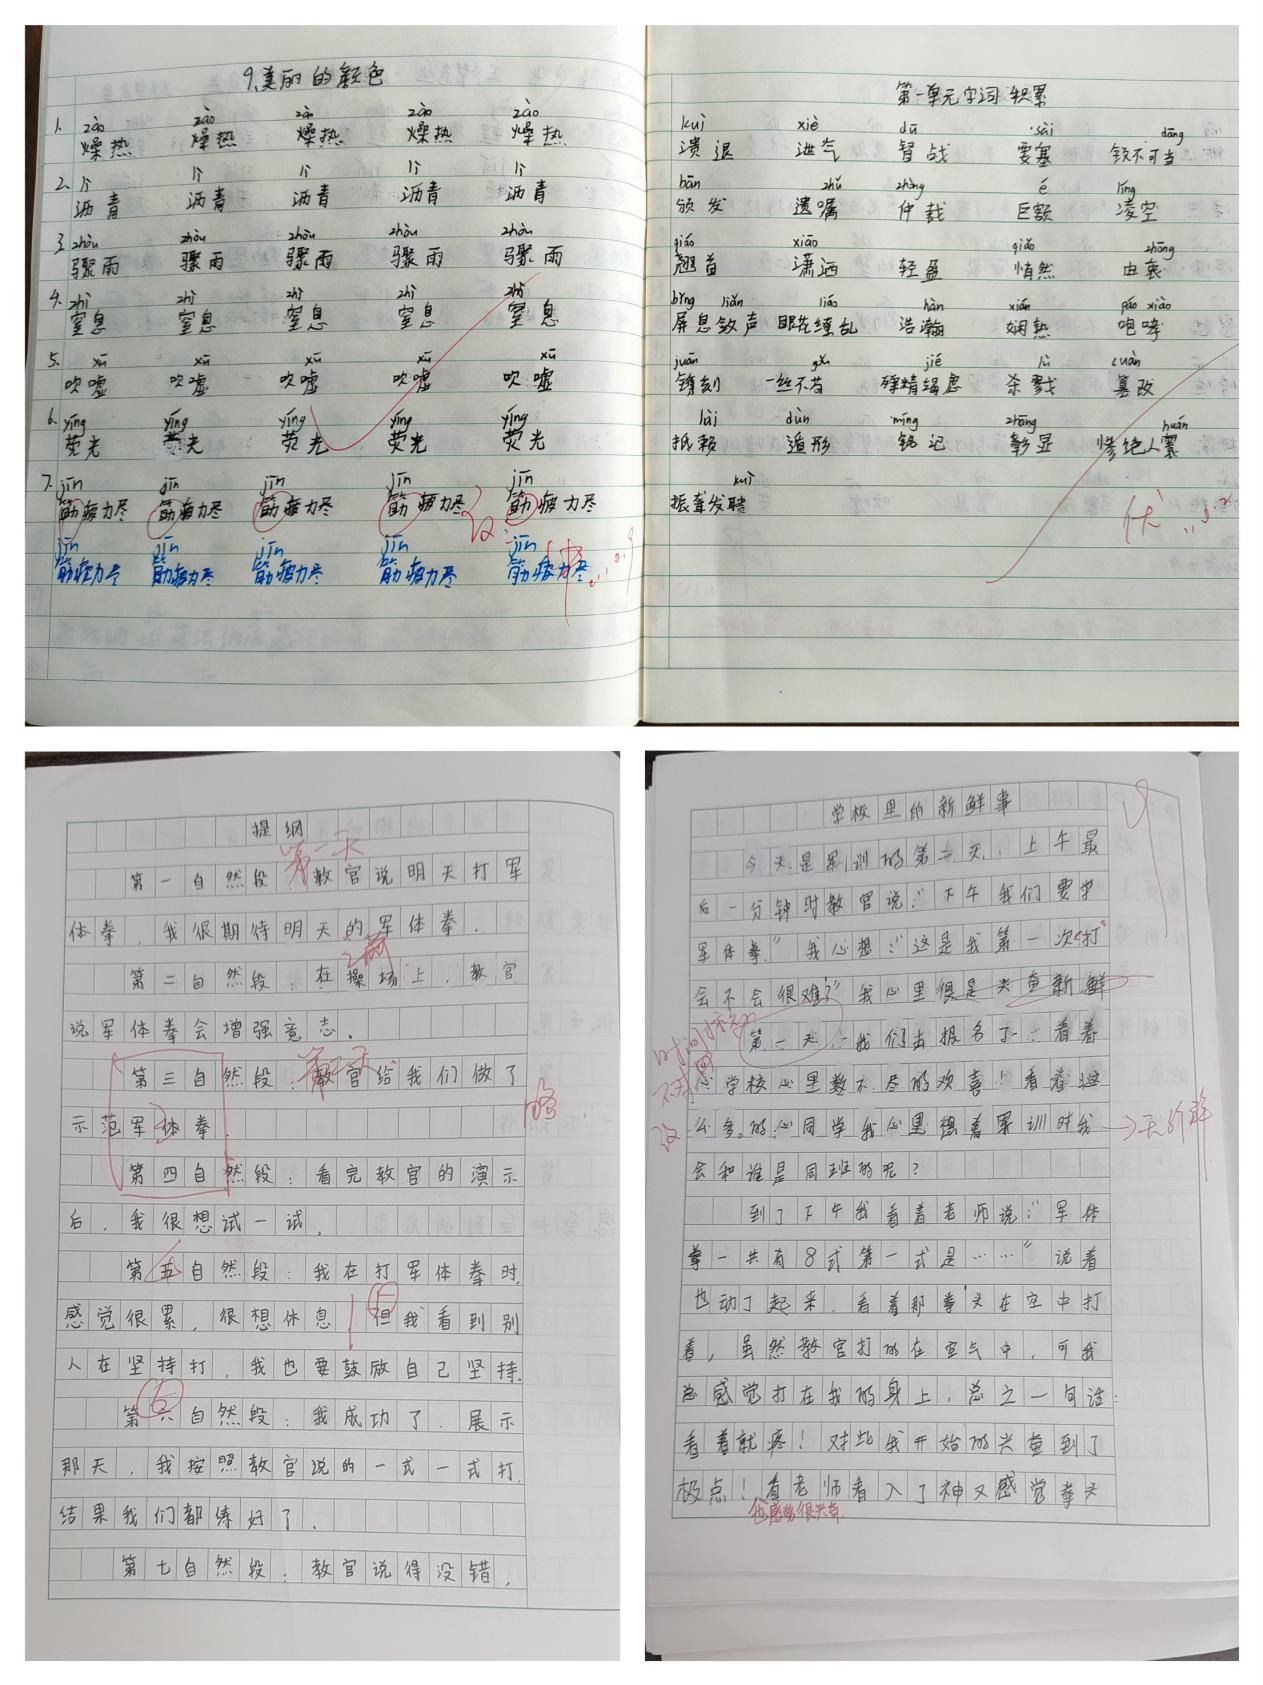 9.美丽的颜色
1. zào zào zào zào zào
燥热 燥热 燥热 燥热 燥热
2. lì lì lì lì lì
沥青 沥青 沥青 沥青 沥青
3. zhòu zhòu zhòu zhòu zhòu
骤雨 骤雨 骤雨 骤雨 骤雨
4. zhì zhì zhì zhì zhì
窒息 窒息 窒息 窒息 窒息
5. xū xū xū xū xū
吹嘘 吹嘘 吹嘘 吹嘘 吹嘘
6. yíng yíng yíng yíng yíng
荧光 荧光 荧光 荧光 荧光
7. jīn jīn jīn jīn jīn
筋疲力尽 筋疲力尽 筋疲力尽 筋疲力尽 筋疲力尽
改
jīn jīn jīn jīn jīn
筋疲力尽 筋疲力尽 筋疲力尽 筋疲力尽 筋疲力尽
第一单元字词积累
kuì xiè dū sài dāng
溃退 泄气 督战 要塞 锐不可当
bān zhǔ zhòng é líng
颁发 遗嘱 仲裁 巨额 凌空
qiáo xiāo qiǎo zhōng
翘首 潇洒 轻盈 悄然 由衷
bǐng liǎn liáo hàn xián páo xiào
屏息敛声 眼花缭乱 浩瀚 娴熟 咆哮
juān gǒu jié lù cuàn
镌刻 一丝不苟 殚精竭虑 杀戮 篡改
lài dùn míng zhāng huán
抵赖 遁形 铭记 彰显 惨绝人寰
kuì
振聋发聩
优
提纲
第一天
第一自然段:教官说明天打军
体拳,我很期待明天的军体拳.
第二自然段:在操场上,教官
说军体拳会增强意志.
第二天
第三自然段:教官给我们做了
示范军体拳.
略
第四自然段:看完教官的演示
后,我很想试一试.
第五自然段:我在打军体拳时,
感觉很累,很想休息,但我看到别
人在坚持打,我也要鼓放自己坚持.
第六自然段:我成功了.展示
五
那天,我按照教官说的一式一式打,
结果我们都练好了.
第七自然段:教官说得没错,
学校里的新鲜事
今天是军训的第二天,上午最
后一分钟时教官说:“下午我们要学
军体拳.”我心想:“这是我第一次打
会不会很难?”我心里很是兴奋新鲜
第一天:我们去报名了:看着
时间标题
改
心学校心里数不尽的欢喜!看着这
么多的心同学我心里想着军训时我
会和谁是同班的呢?
到了下午我看着老师说:“军体
拳一共有8式第一式是……”说着
也动了起来.看着那拳头在空中打
着,虽然教官打的在空气中,可我
总感觉打在我的身上,总之一句话:
看着就疼!对此我开始的兴奋到了
极点!看老师看入了神又感觉拳头